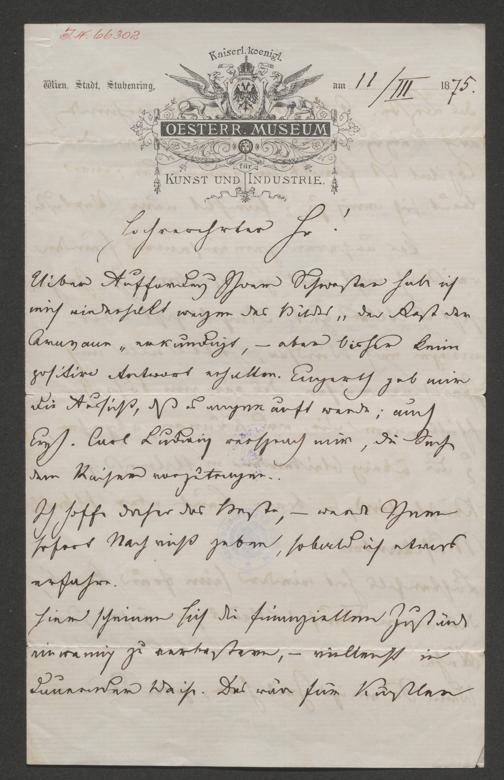 I.N. 66302
Kaiserl. koenigl.
Wien, Stadt, Stubenring, am 11/III 1875.
OESTERR. MUSEUM
für
KUNST UND INDUSTRIE.
Hochverehrter Hr!
Ueber Aufforderung Ihrer Schwester habe ich
mich wiederholt wegen des Bildes „der Rast der
erkundigt, – aber bisher keine
positive Antwort erhalten. Engerth gab mir
die Aussicht, daß es angekauft werde; auch
Erzh. Carl Ludwig versprach mir, die Sache
dem Kaiser vorzutragen.
Ich hoffe daher das Beste, – werde Ihnen
sofort Nachricht geben, sobald ich etwas
erfahre.
Hier scheinen sich die finanziellen Zustände
ein wenig zu verbessern, – vielleicht in
dauernder Weise. Das wäre für Künstler